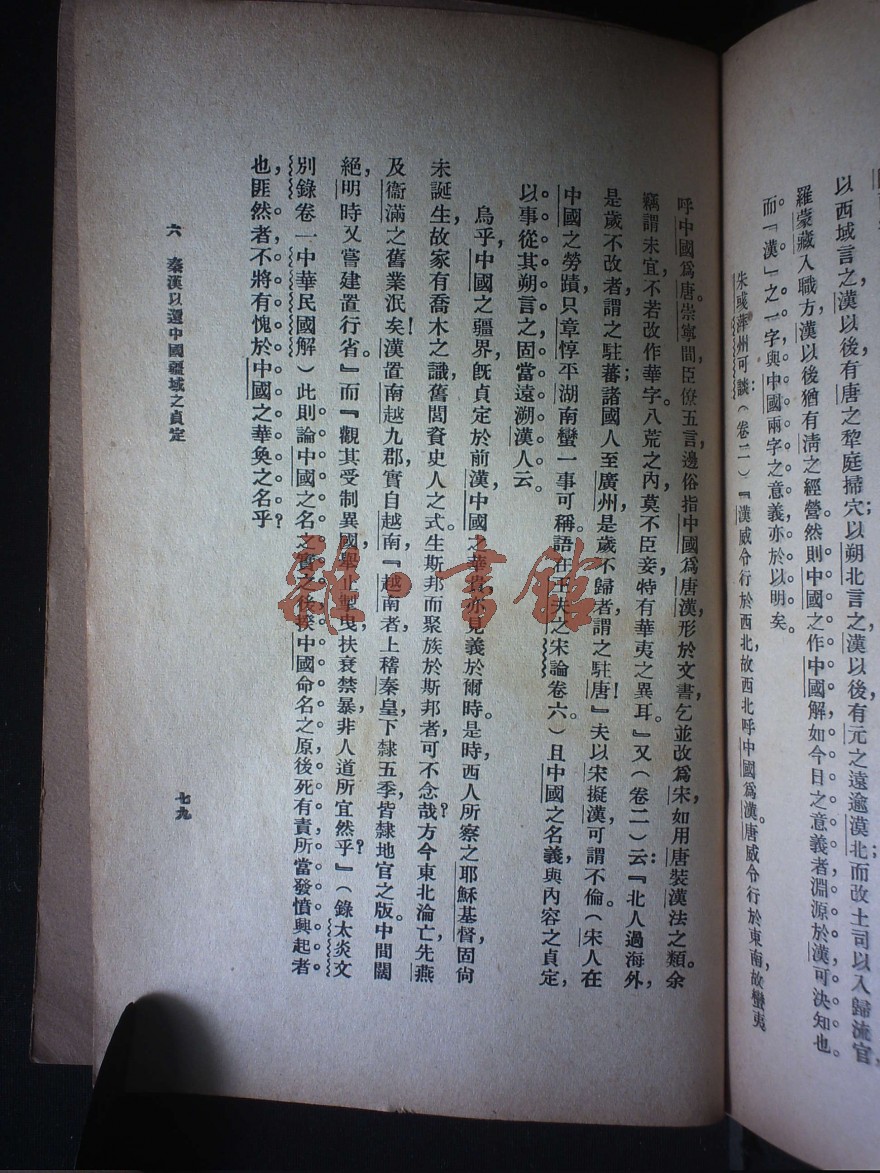 以西域言之，漢以後，有唐之犂庭掃穴；以朔北言之，漢以後，有元之遠逾漠北；而改土司以入歸流官，
羅蒙藏入職方，漢以後，猶有清之經營。然則中國之作中國解，如今日之意義者，淵源於漢，可決知也。
而「漢」之一字，與中國兩字之意義，亦於以明矣。
朱彧萍州可談：（卷二）『漢威令行於西北，故西北呼中國為漢。唐威令行於東南，故蠻夷
呼中國為唐。崇寧間，臣僚五言，邊俗指中國為唐漢，形於文書，乞並改為宋，如用唐裝漢法之類。余
竊謂未宜，不若改作華字。八荒之內，莫不臣妾，特有華夷之異耳。』又（卷二）云：『北人過海外，
是歲不改者，謂之駐蕃；諸國人至廣州，是歲不歸者，謂之駐唐！』夫以宋擬漢，可謂不倫，（宋人在
中國之勞蹟，只章惇平湖南蠻一事可稱，語在王夫之宋論卷六。）且中國之名義，與內容之貞定，
以事從其朔言之，固當遠溯漢人云。
烏乎，中國之疆界，旣貞定於前漢，中國之華貴，亦見義於爾時。是時，西人所察之耶穌基督，固尙
未誕生，故家有喬木之識，舊閥資史人之式。生斯邦而聚族於斯邦者，可不念哉？方今東北淪亡，先燕
及衞滿之舊業泯矣！漢置南越九郡，實自越南，『越南者，上稽秦皇，下隸五季，皆隸地官之版。中間闊
絕，明時又嘗建置行省。』而『觀其受制異國，舉止掣曳，扶衰禁暴，非人道所宜然乎？』（錄太炎文
別錄卷一中華民國解）此則論中國之名之實之後，揆中國命名之原，後死有責，所當發憤興起者
也，匪然者，不將有愧於中國之華奐之名乎？
六　秦漢以還中國疆域之貞定
七九
雜·書館